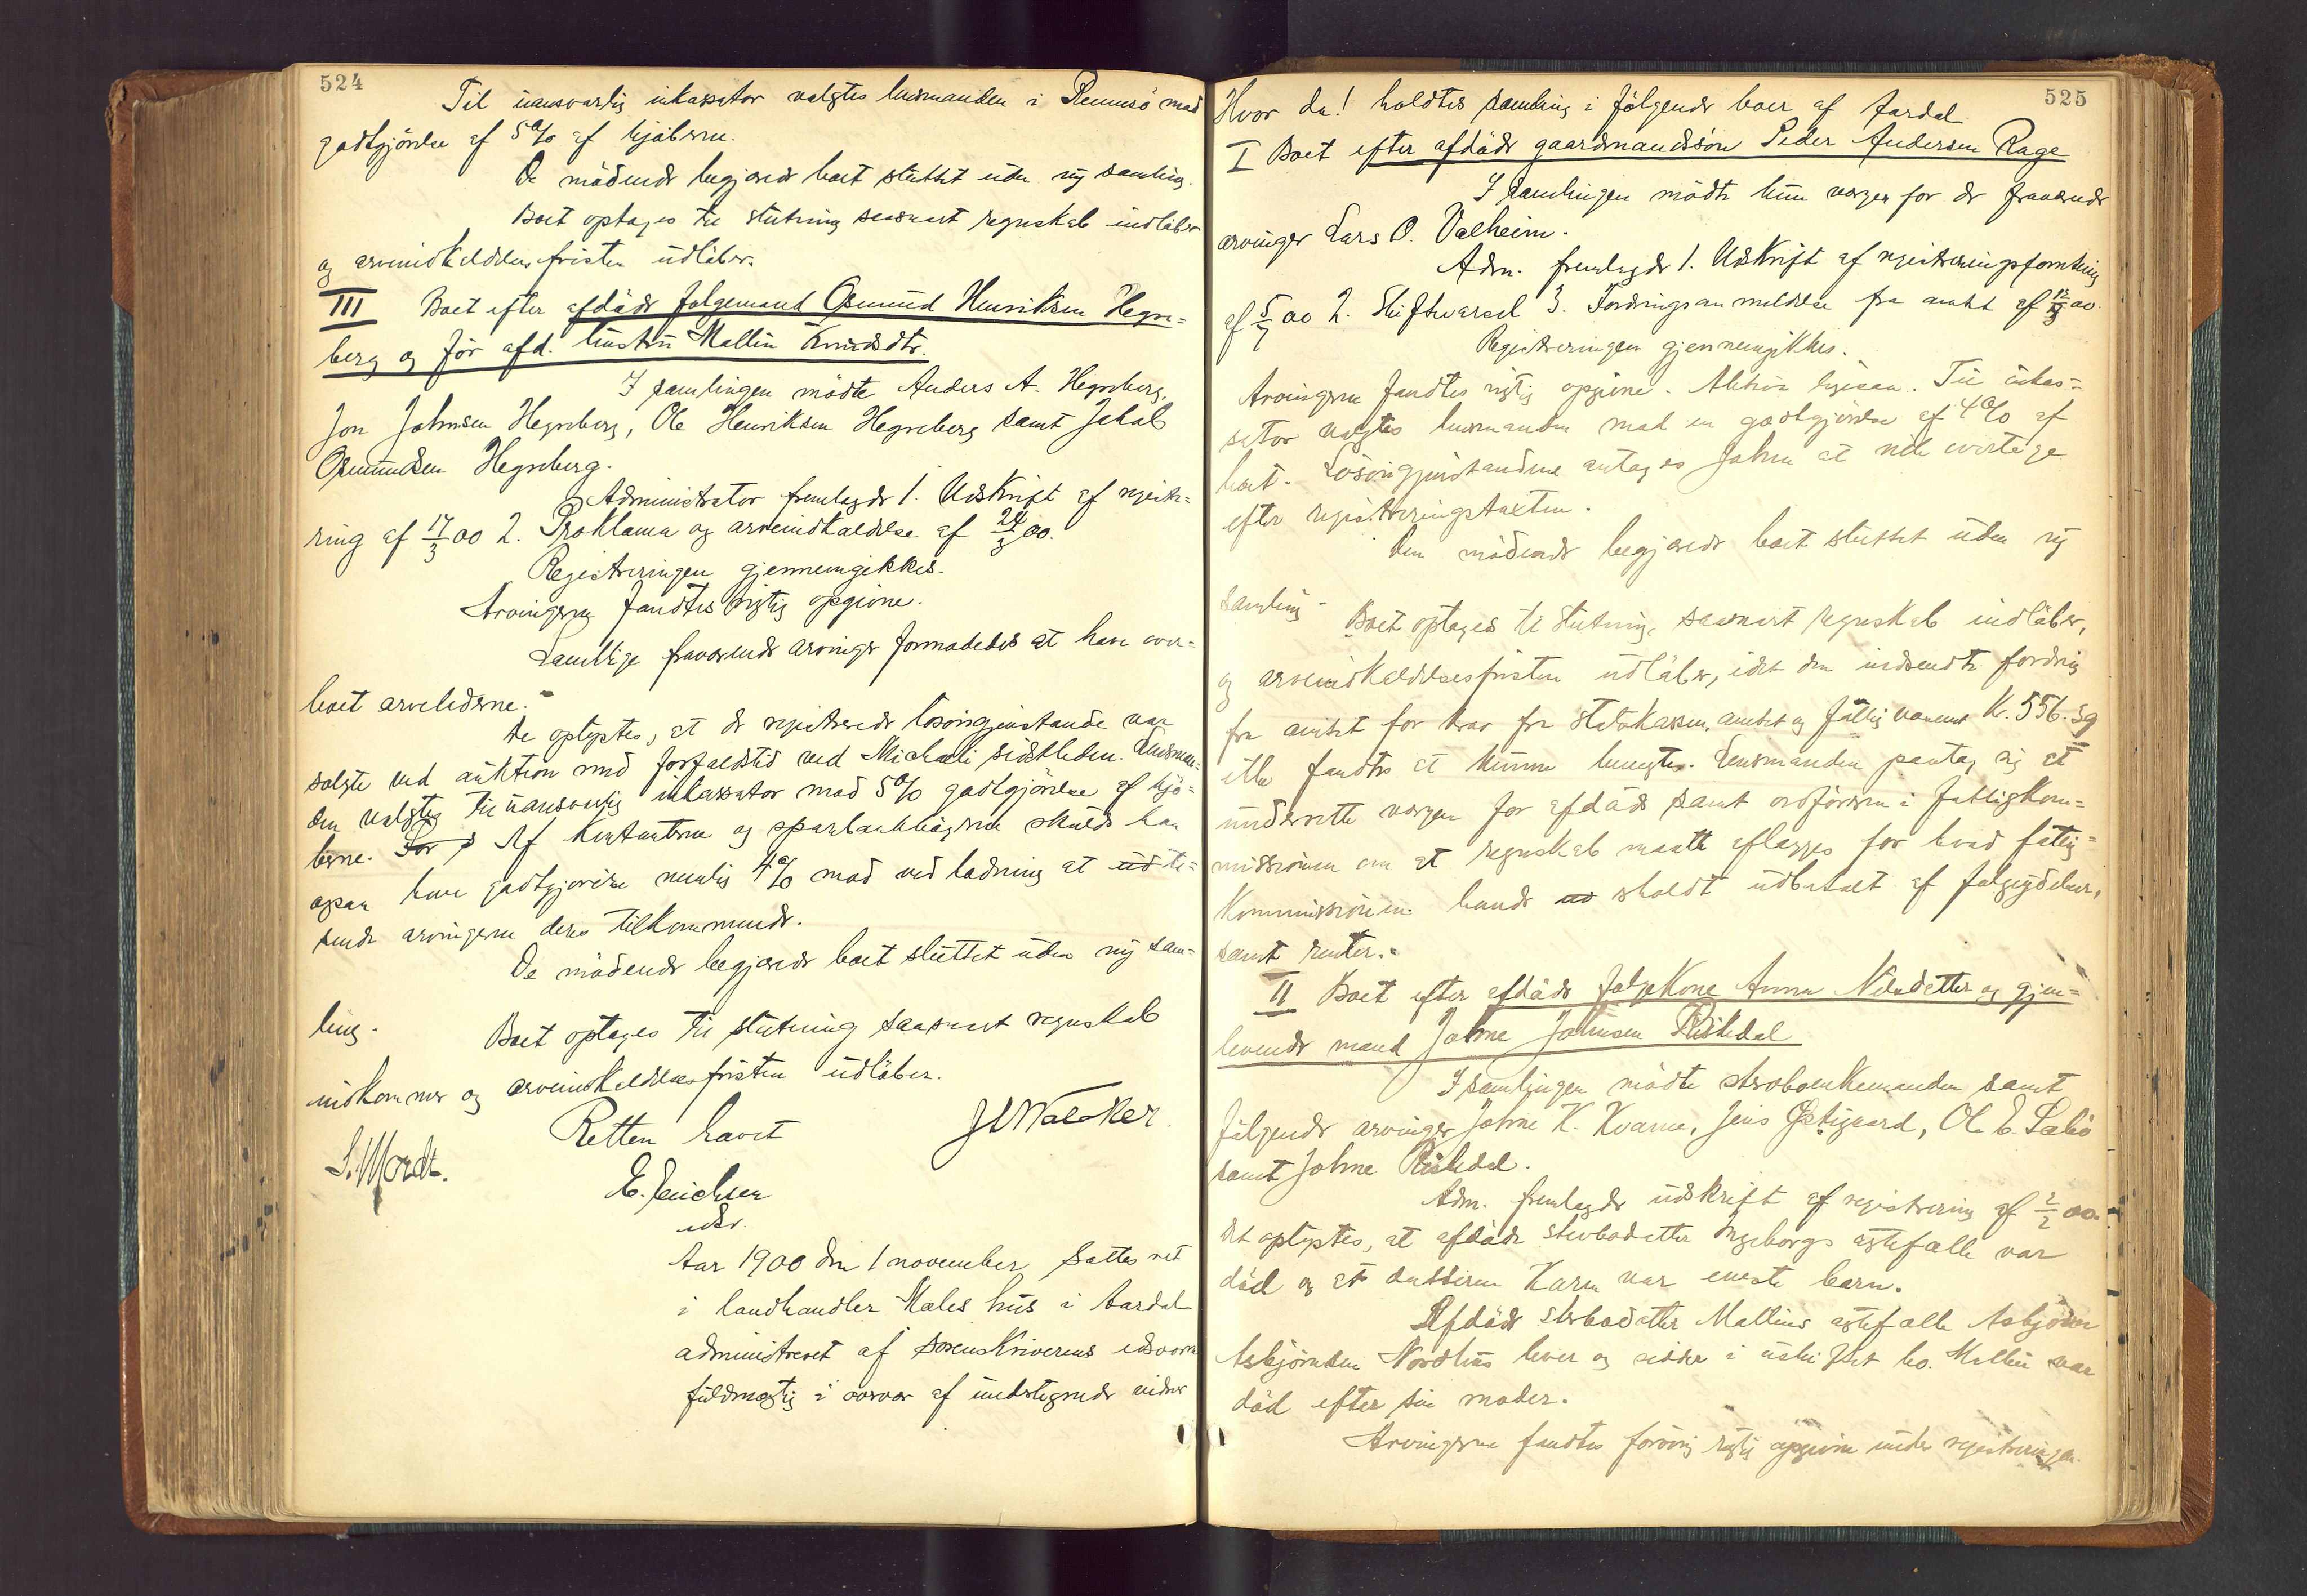 524
Til uansvarlig inkassator valgtes lensmanden i Rennesö mod
godtgjörelse af 5% af kjöberne.
De mödende begjærede boet sluttet uden ny samling.
Boet optages til slutning saasnart regnskab indlöber
og arveindkaldelsesfristen udlöber.
III Boet efter afdöde folgemand Osmund Henriksen Hegre=
berg og för afd. hustru Mallin Knudsdtr.
I samlingen mödte Anders A. Hegreberg,
Jon Johnsen Hegreberg, Ole Henriksen Hegreberg samt Jakob
Osmundsen Hegreberg.
Administrator fremlagde 1. Udskrift af registre=
ring af 17/3 00 2. Proklama og arveindkaldelse af 24/3 00.
Registreringen gjennemgikkes.
Arvingerne fandtes rigtig opgivne.
Samtlige fraværende arvinger formodedes at have over=
levet arveladerne.
De oplystes, at de registrerede lösöregjenstande var
solgte ved auktion med forfaldstid ved Michaeli sidstleden. Lensman=
den valgtes til uansvarlig inkassator mod 5% godtgjörelse af kjö=
berne. For Af kontanterne og sparbankbögerne skulde han
ogsaa have godtgjörelse nemlig 4% mod ved lodning at ud til=
sende arvingerne deres tilkommende.
De mödende begjærede boet sluttet uden ny sam=
ling.
Boet optages til slutning saasnart regnskab
indkommer og arveindkaldelsesfristen udlöber.
Retten hævet
E. Erichsen
edsv.
S. Mordt.
Aar 1900 den 1 november sattes ret
i landhandler Males hus i Aardal
administreret af sorenskriverens edsvorne
fuldmægtig i overvær af undertegnede vidner
525
Hvor da! holdtes samling i fölgende boer af Aardal
I Boet efter afdöde gaardmandssön Peder Andersen Rage
I samlingen mödte kun vergen for de fraværende
arvinger Lars O. Valheim.
Adm. fremlagde 1. Udskrift af registreringsforretning
af 5/7 00 2. Skiftevarsel 3. Fordringsanmeldelse fra amtet af 00.
Registreringen gjennemgikkes.
Arvingerne fandtes rigtig opgivne. Aktiva ligesaa. Til inkas=
sator valgtes lensmanden mod en godtgjörelse af 4% af
boet. Lösöregjenstandene antages Johne at ville overtage
efter registreringstaxten.
Den mödende begjærede boet sluttet uden ny
samling.
Boet optages til slutning, saasnart regnskab indlöber,
og arveindkaldelsesfristen udlöber, idet den indsendte fordring
fra amtet for krav fra statskassen, amtet og fattigvæsenet Kr. 556.59
ikke fandtes at kunne benegtes. Lensmanden paatog sig at
underrette vergen for afdöde samt ordföreren i fattigkom=
missionen om at regnskab maatte aflægges for hvad fattig=
kommissionen havde ud sholdt udbetalt af folgeydelser,
samt renter.
II Boet efter afdöde folgekone Anna Nilsdatter og gjen=
levende mand Johne Johnsen Riskedal
I samlingen mödte sterboenkemanden samt
fölgende arvinger Johne K. Kvarne, Jens Østigaard, Ole E. Sabö
samt Johne Riskedal.
Adm. fremlagde udskrift af registrering af 2/2 00.
Det oplystes, at afdöde sterbodatter Ingeborgs ægtefælle var
död og at datteren Karen var eneste barn.
Afdöde sterbodatter Mallins ægtefælle Asbjörn
Asbjörnsen Nordhus lever og sidder i uskiftet bo. Mallin var
död efter sin moder.
Arvingerne fandtes forövrig rigtig opgivne under registreringen.